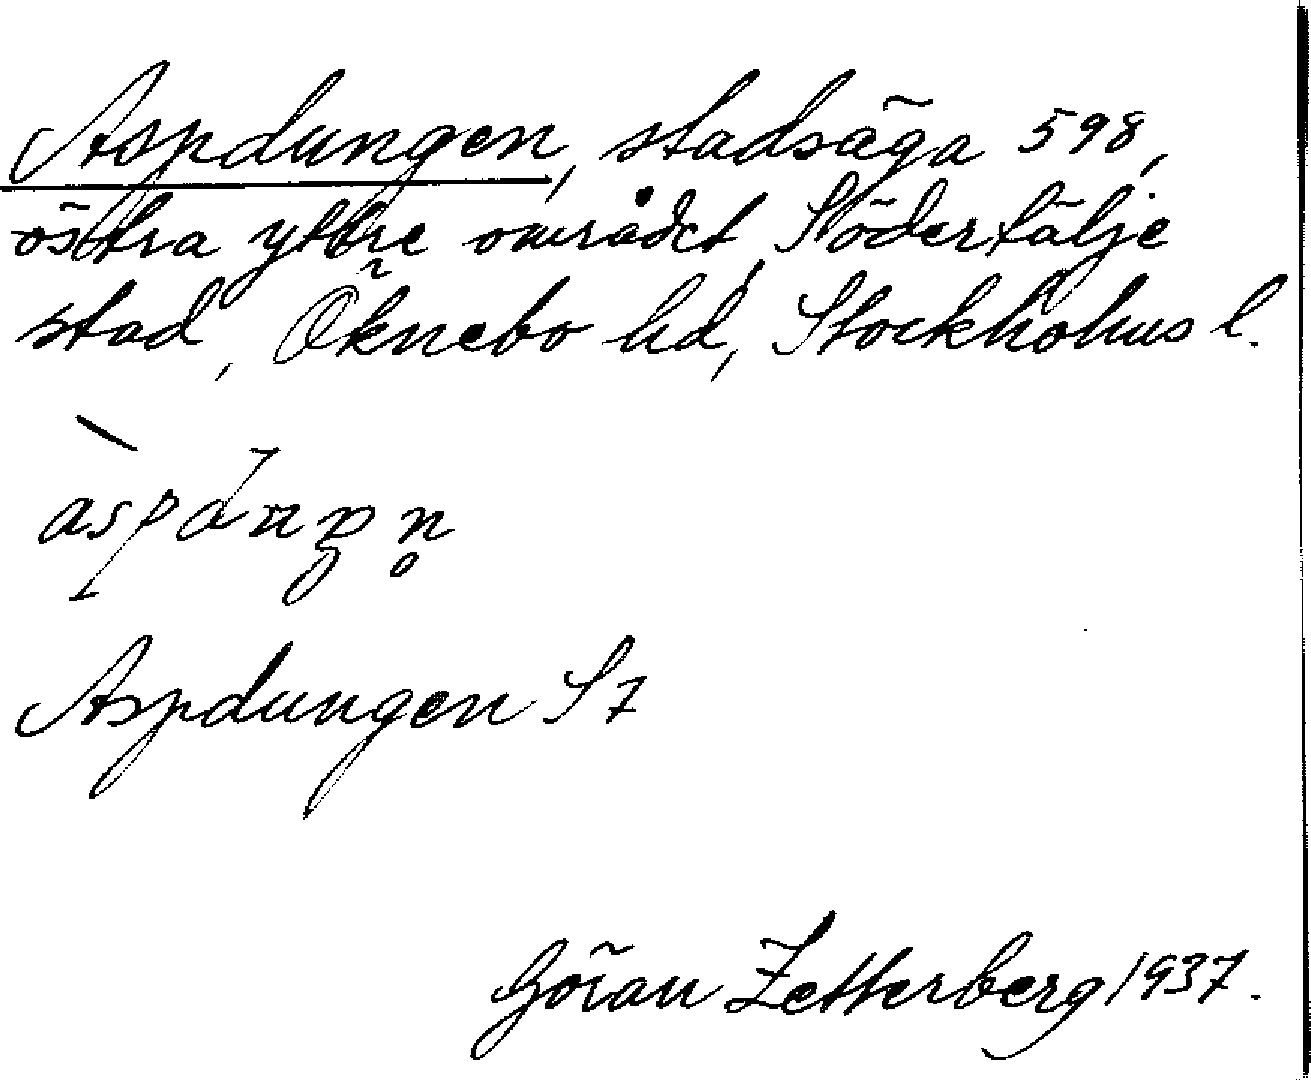 Aspdungen, stadsäga 598,
östra yttre området, Södertälje
stad, Öknebo hd, Stockholms l.
Aspdungen S7
Göran Zetterberg 1937.